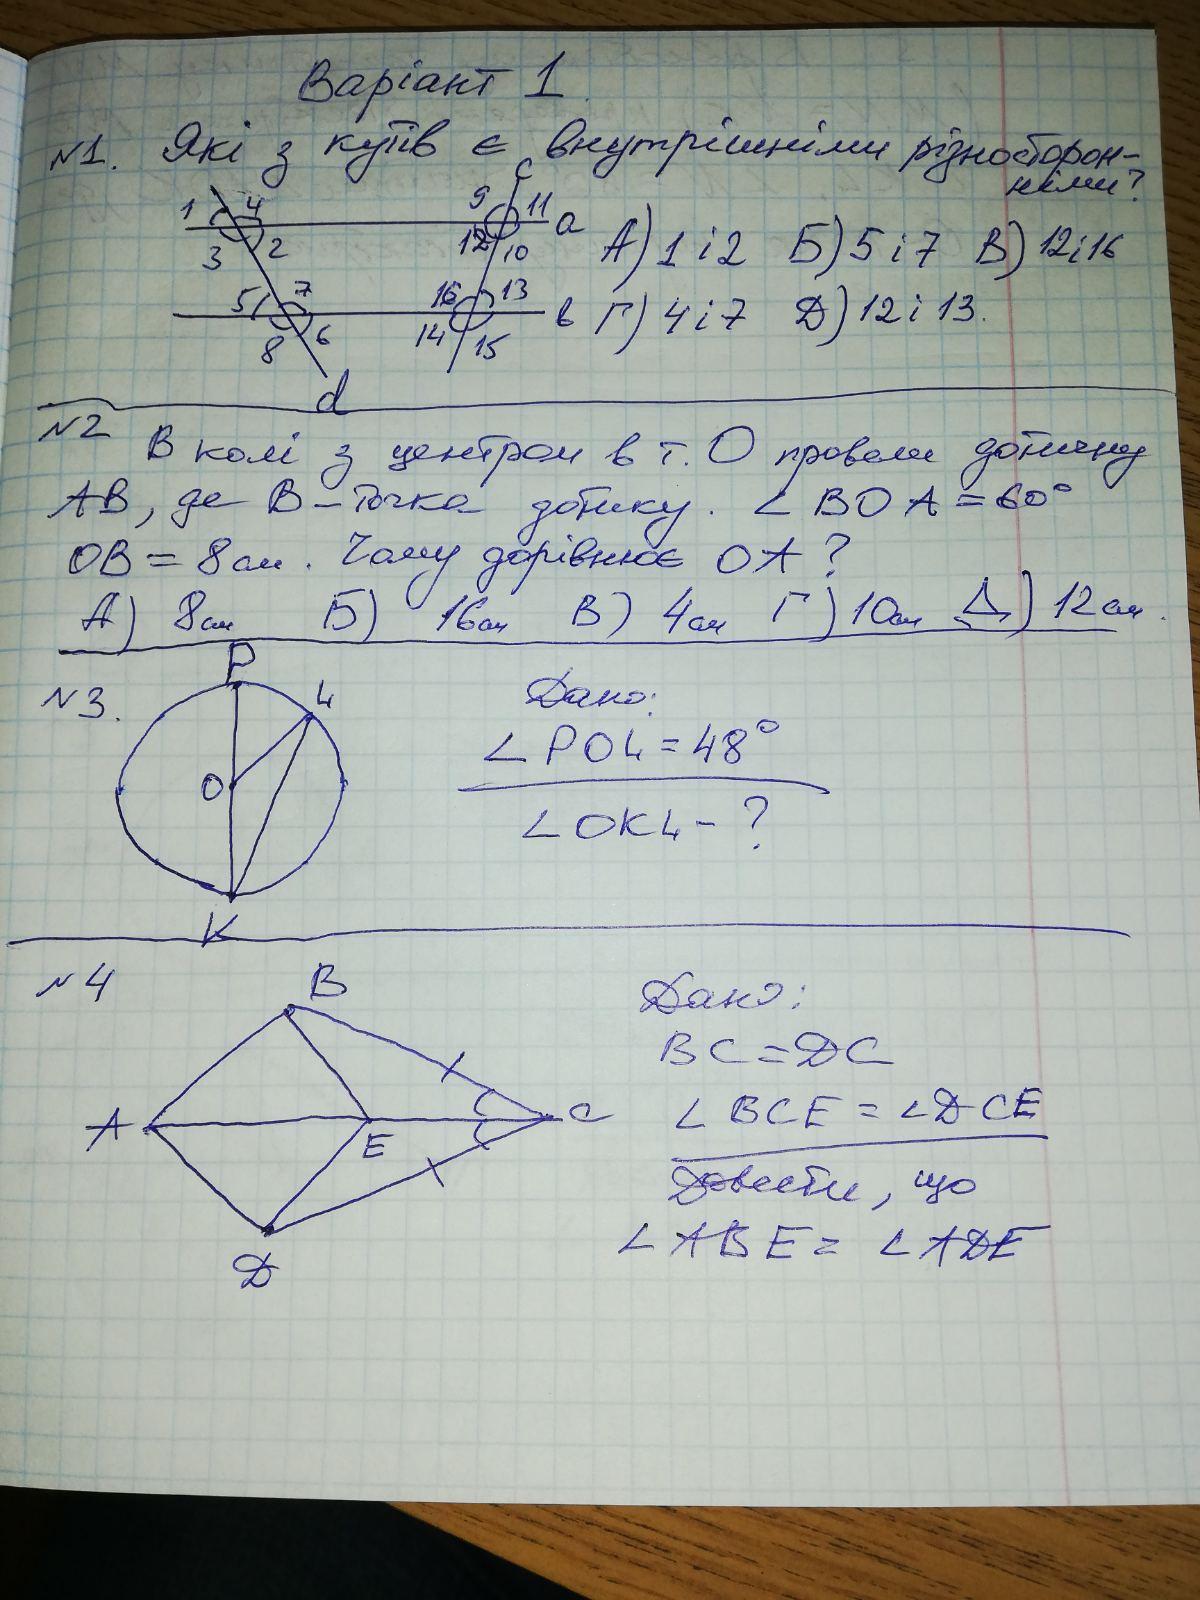 Варіант 1
№1. Які з кутів є внутрішніми різносторон-
німи?
c
1 4 9 11 a
3 2 12 10
А) 1 і 2 Б) 5 і 7 В) 12 і 16
5 7 16 13 в
8 6 14 15
Г) 4 і 7 Д) 12 і 13.
d
№2 В колі з центром в т. О провели дотичну
АВ, де В – точка дотику. ∠BOA = 60°
OB = 8 см. Чому дорівнює OA?
А) 8 см Б) 16 см В) 4 см Г) 10 см Д) 12 см.
№3.
P
L
O
K
Дано:
∠POL = 48°
∠OKL - ?
№4
B
A E C
D
Дано:
BC = DC
∠BCE = ∠DCE
Довести, що
∠ABE = ∠ADE